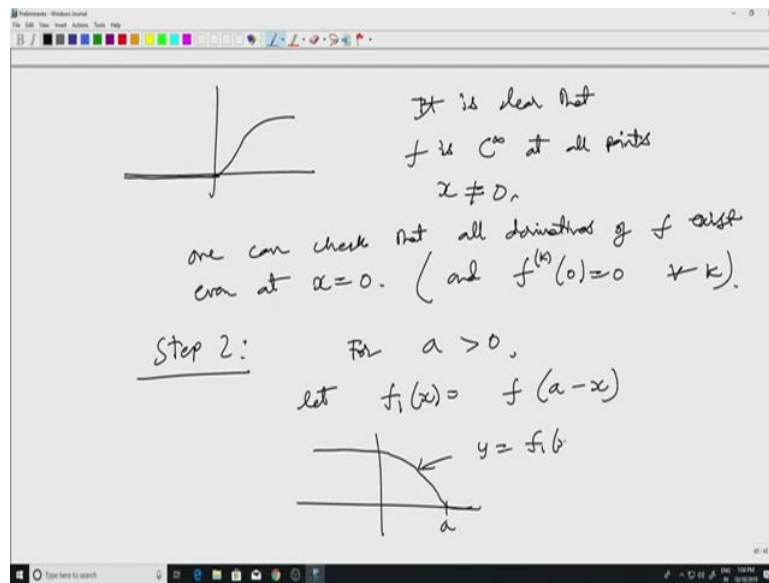 Preliminaries - Windows Journal
File Edit View Insert Actions Tools Help
It is clear that
f is C^∞ at all points
x ≠ 0.
one can check that all derivatives of f exist
even at x = 0. ( and f^(k) (0) = 0 ∀ k).
Step 2: For a > 0,
let f₁(x) = f (a - x)
y = f₁(x
a
Type here to search